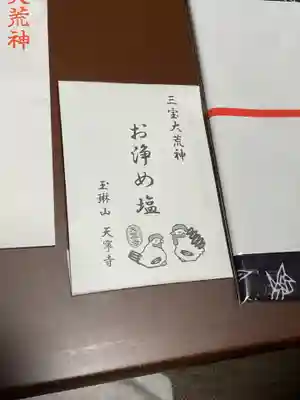 大荒神
三宝大荒神
お浄め塩
玉琳山 天寧寺